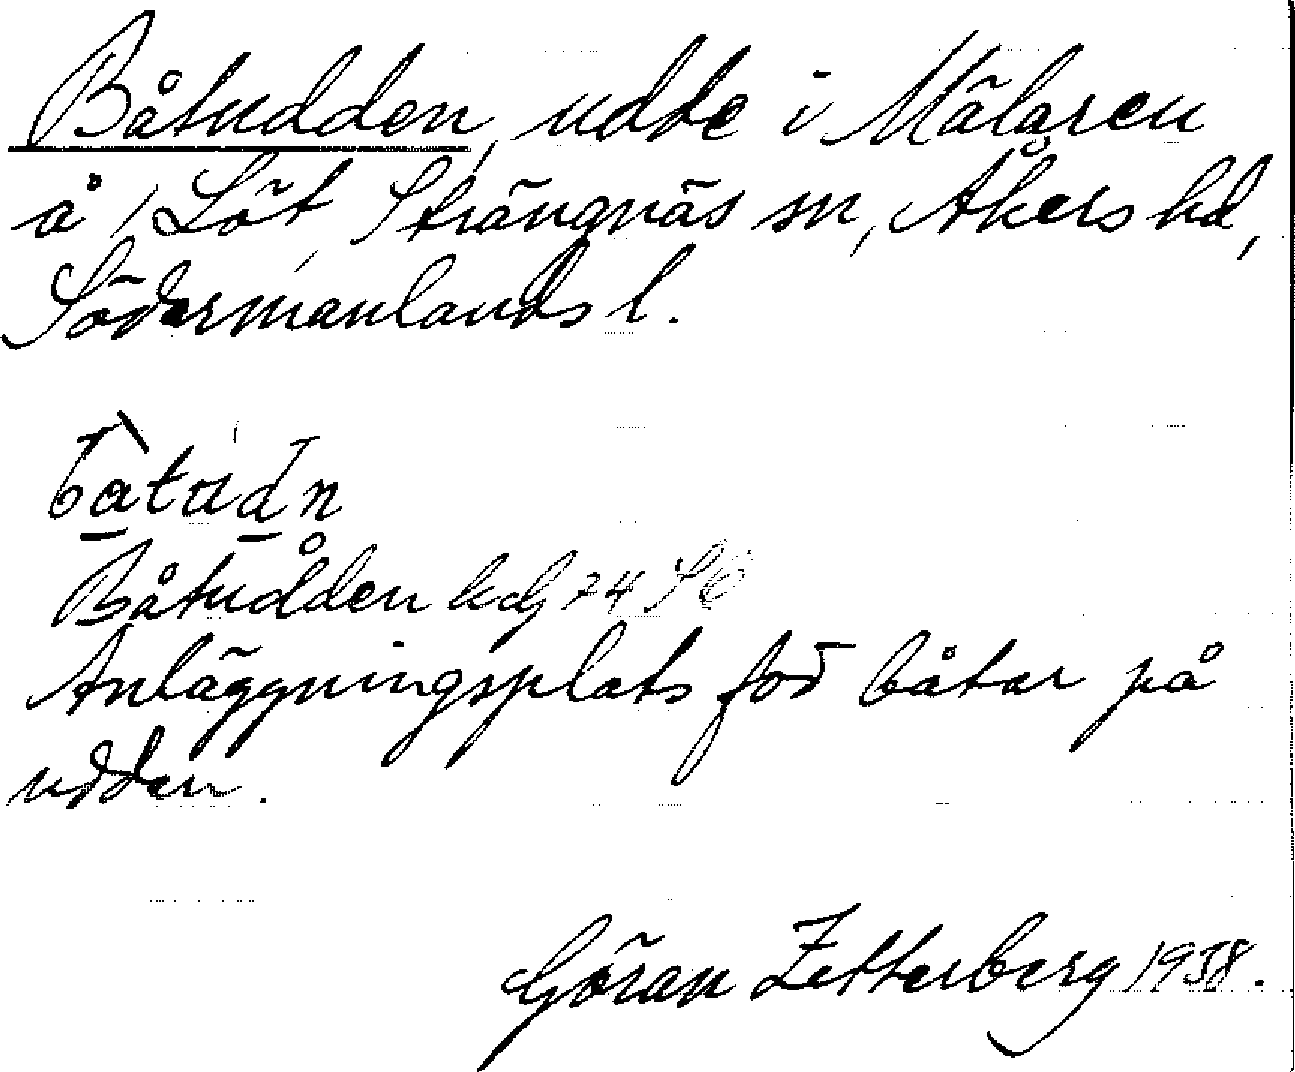 Båtudden, udde i Mälaren
å 1 Löt, Strängnäs sn, Åkers hd,
Södermanlands l.
båtudn
Båtudden kdg 74 SÖ
Anläggningsplats för båtar på
udden.
Göran Zetterberg 1938.